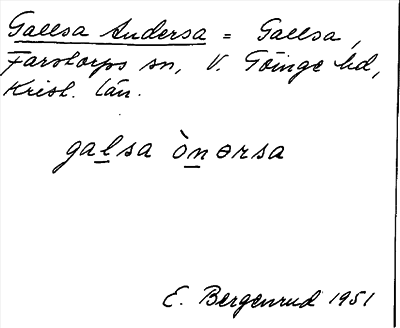 Gallsa Andersa = Gallsa,
Farstorps sn, V. Göinge hd,
Krist. län.
galsa ònərsa
E. Bergenrud 1951